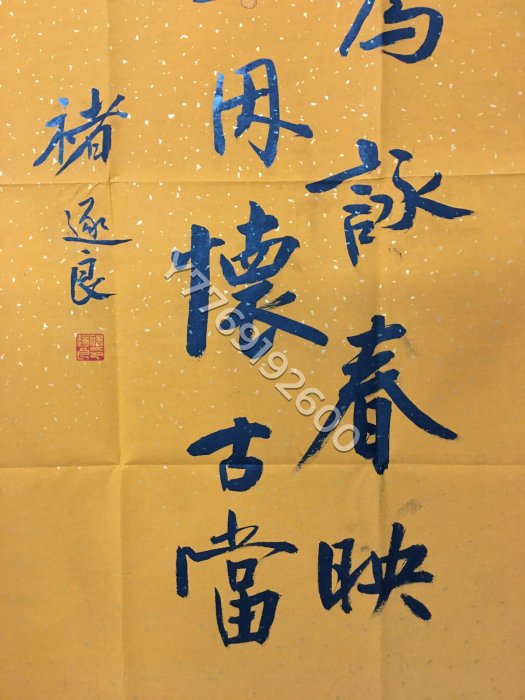 為詠春映
用懷古當
褚遂良
Y7769192600